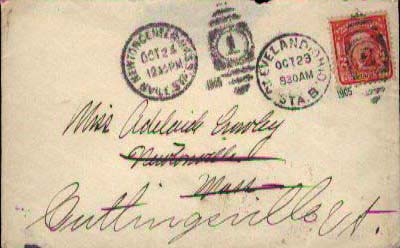 NEWTON CENTER, MASS.
OCT 24
12 30 PM
1
1905
CLEVELAND, OHIO
OCT 23
930 AM
STA. B.
1905
2
Miss Adelaide Crowley
Newtonville
Mass
Cuttingsville Vt.